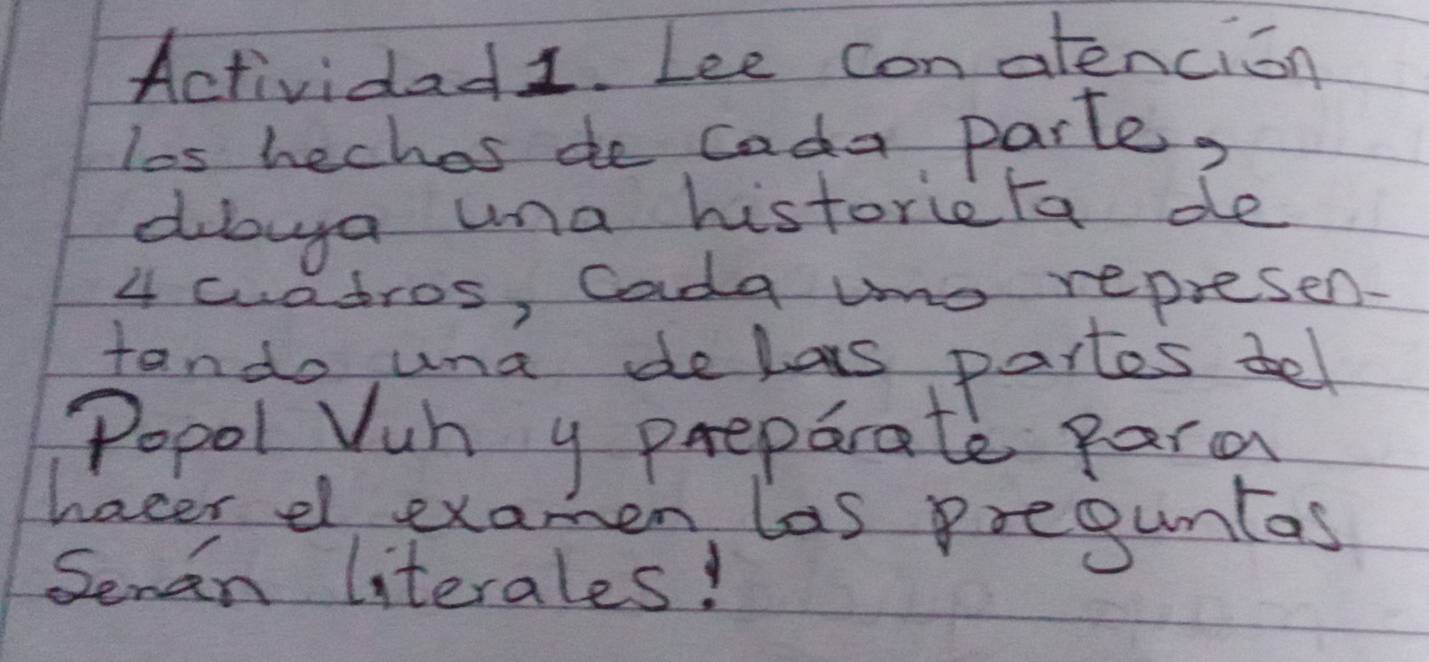 Actividad 1. Lee con atención
los hechos de cada parte,
dibuya una historieta de
4 cuadros, cada uno represen-
tando una de las partes del
Popol Vuh y prepárate para
hacer el examen las preguntas
Serán literales!